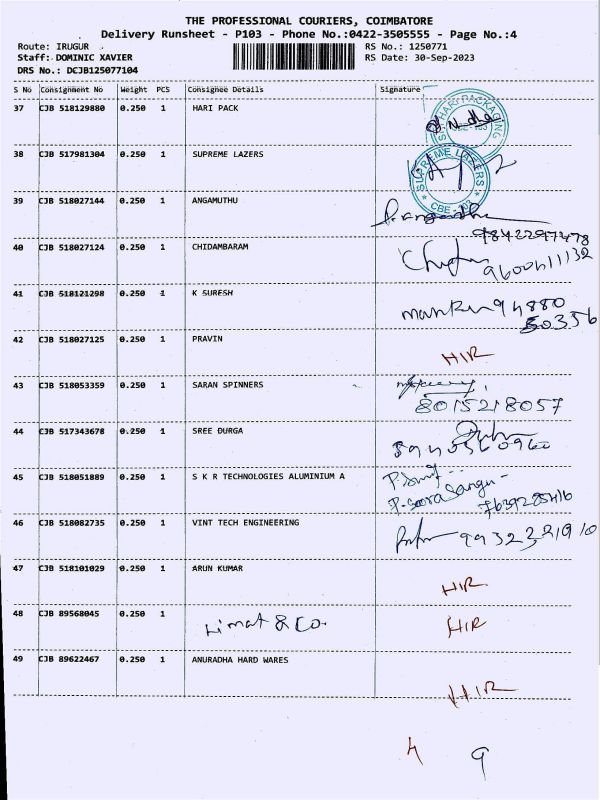 THE PROFESSIONAL COURIERS, COIMBATORE
Delivery Runsheet - P103 - Phone No.:0422-3505555 - Page No.:4
Route: IRUGUR RS No.: 1250771
Staff: DOMINIC XAVIER RS Date: 30-Sep-2023
DRS No.: DCJB125077104
S No Consignment No Weight PCS Consignee Details Signature
37 CJB 518129880 0.250 1 HARI PACK
HARI PACKAGING
38 CJB 517981304 0.250 1 SUPREME LAZERS
SUPREME LAZERS
CBE-103
39 CJB 518027144 0.250 1 ANGAMUTHU
9842297478
40 CJB 518027124 0.250 1 CHIDAMBARAM
41 CJB 518121298 0.250 1 K SURESH
94880
50356
42 CJB 518027125 0.250 1 PRAVIN HIR
43 CJB 518053359 0.250 1 SARAN SPINNERS
8015218057
44 CJB 517343678 0.250 1 SREE DURGA
45 CJB 518051889 0.250 1 S K R TECHNOLOGIES ALUMINIUM A
46 CJB 518082735 0.250 1 VINT TECH ENGINEERING
47 CJB 518101029 0.250 1 ARUN KUMAR HIR
48 CJB 89568045 0.250 1 & Co. HIR
49 CJB 89622467 0.250 1 ANURADHA HARD WARES HIR
4 9